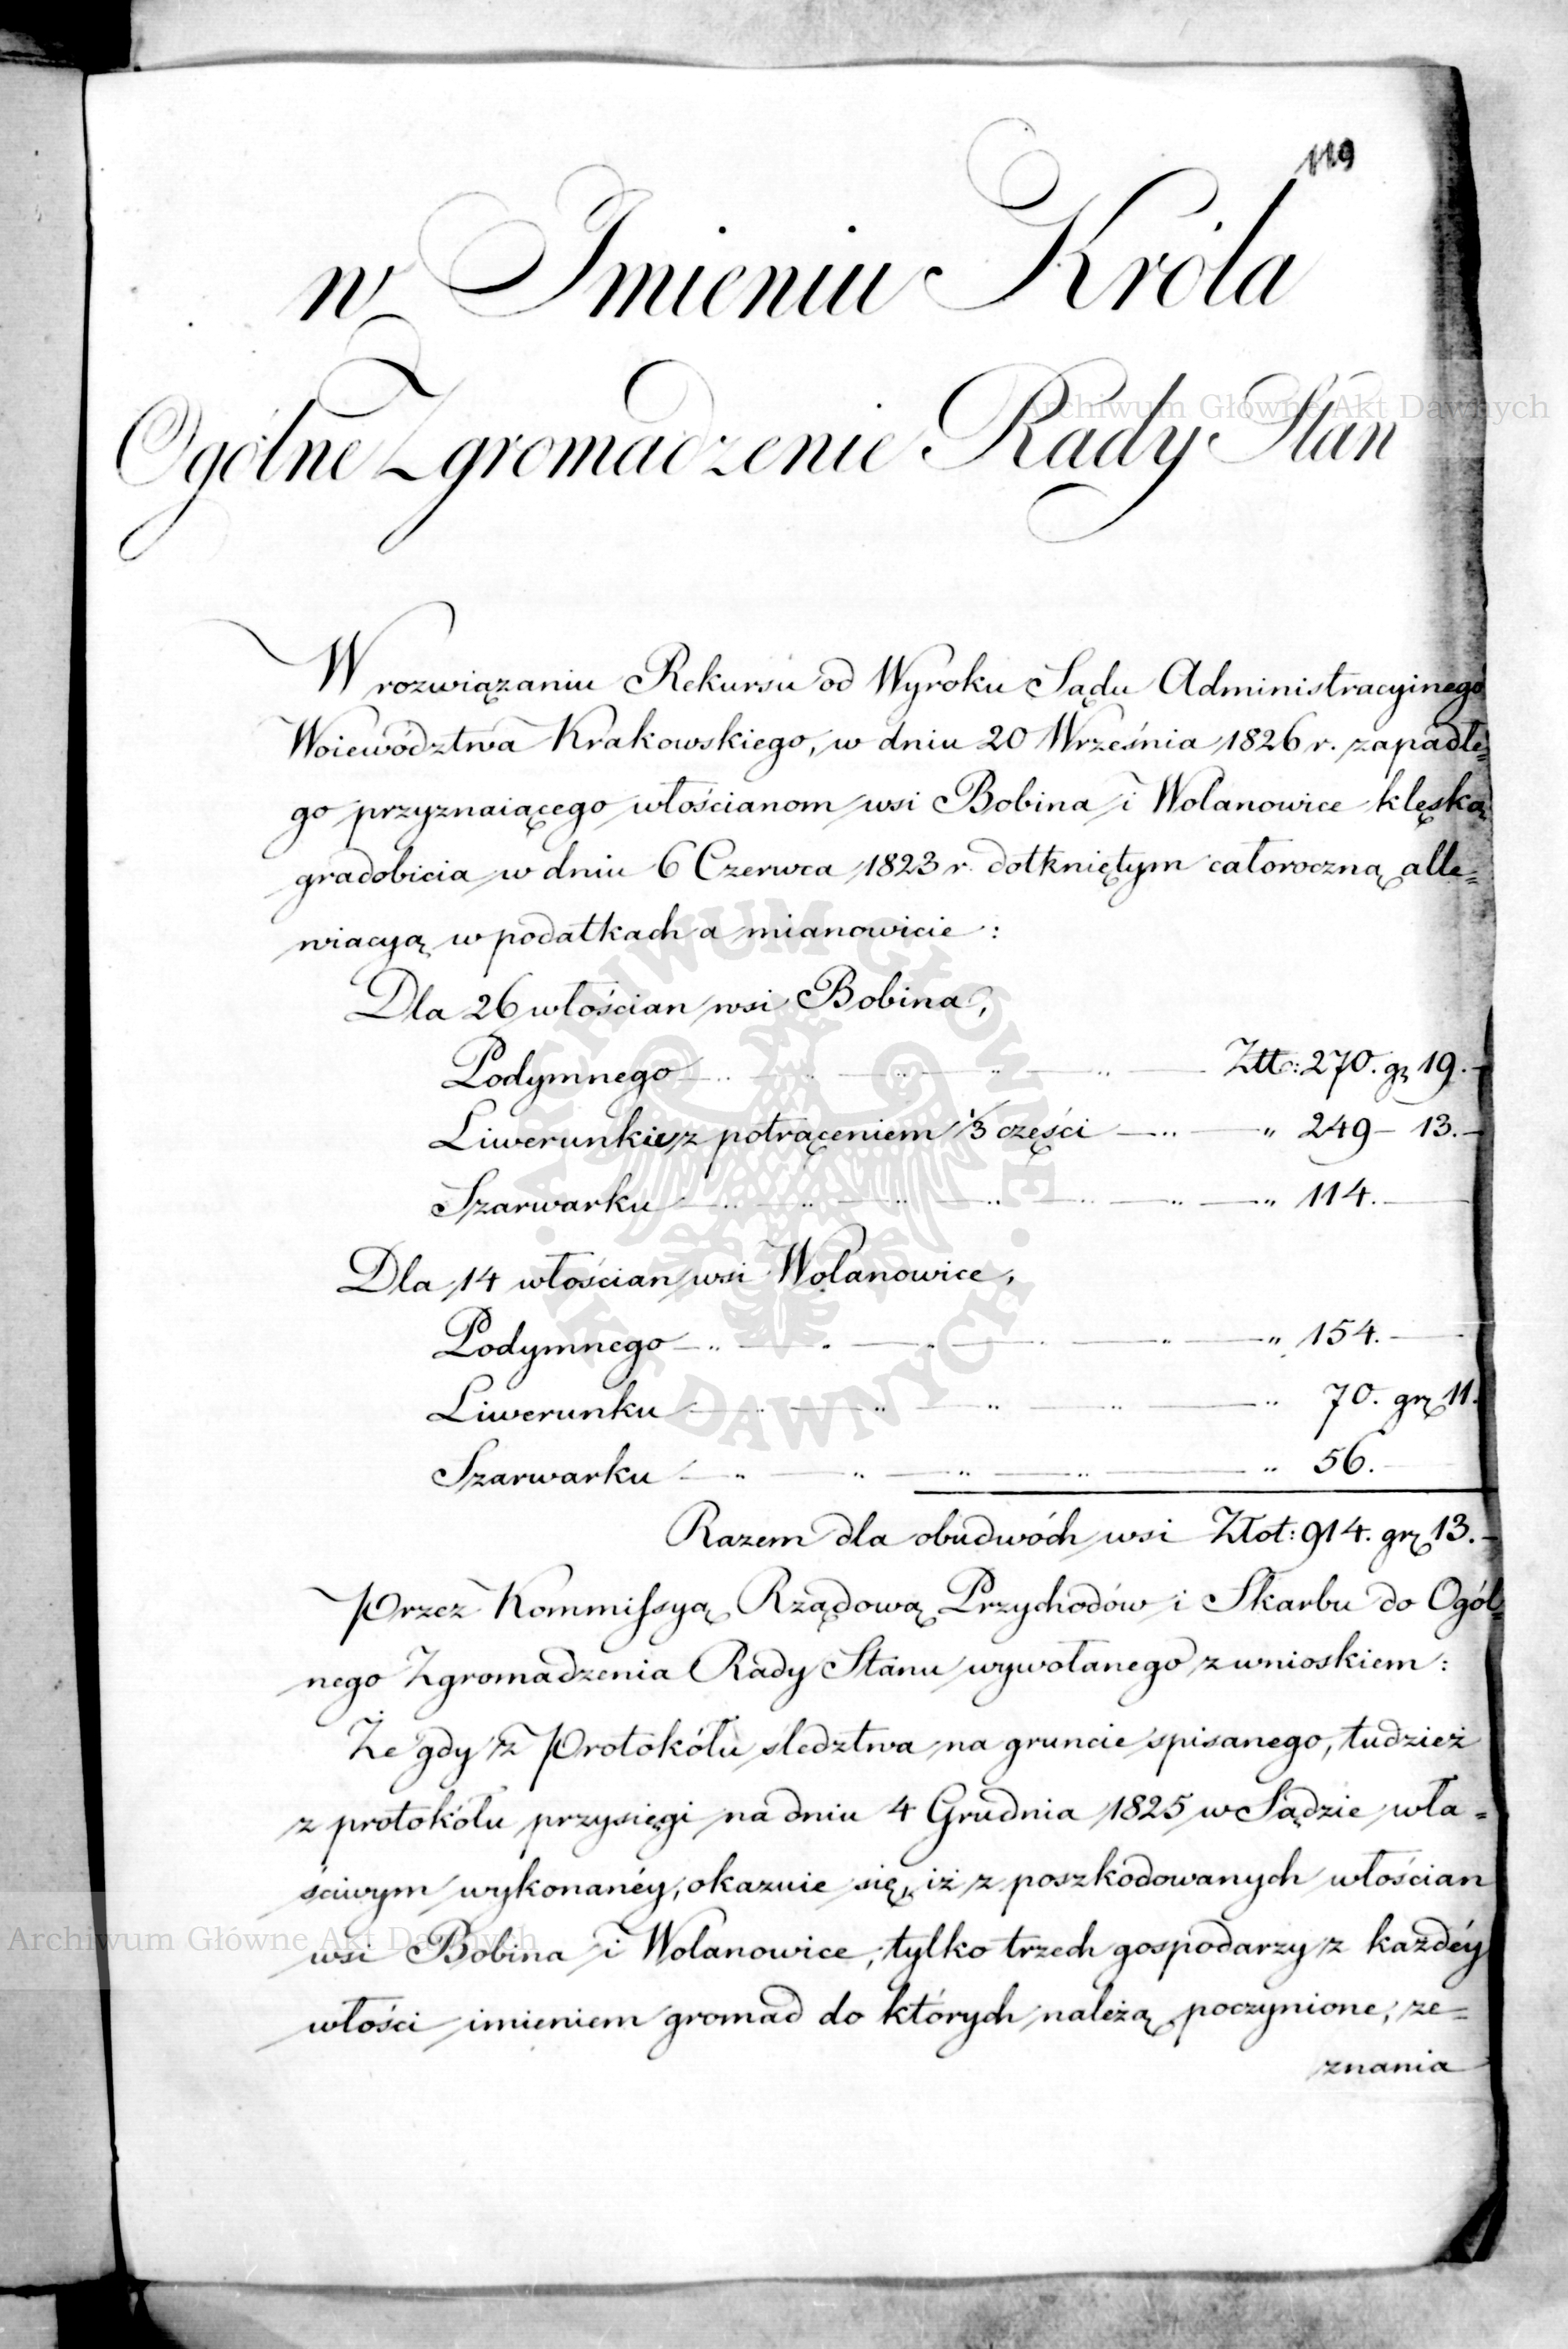 119
w Imieniu Króla
Ogólne Zgromadzenie Rady Stan
W rozwiązaniu Rekursu od Wyroku Sądu Administracyinego
Woiewództwa Krakowskiego, w dniu 20 Września 1826 r. zapadłe=
go przyznaiącego włościanom wsi Bobina i Wolanowice klęską
gradobicia w dniu 6 Czerwca 1823 r. dotkniętym całoroczną alle=
wiacyą w podatkach a mianowicie:
Dla 26 włościan wsi Bobina,
Podymnego Złt: 270. gr 19.
Liwerunku z potrąceniem 1/3 części " 249 – 13.
Szarwarku " 114.
Dla 14 włościan wsi Wolanowice,
Podymnego " 154.
Liwerunku " 70. gr 11.
Szarwarku " 56.
Razem dla obudwóch wsi Złot: 914. gr 13.
Przez Kommissyą Rządową Przychodów i Skarbu do Ogól=
nego Zgromadzenia Rady Stanu wywołanego z wnioskiem:
Że gdy z Protokółu sledztwa na gruncie spisanego, tudzież
z protokółu przysięgi na dniu 4 Grudnia 1825 w Sądzie wła=
ściwym wykonanéy, okazuie się, iż z poszkodowanych włościan
wsi Bobina i Wolanowice, tylko trzech gospodarzy z każdéy
włości imieniem gromad do których należą poczynione, ze=
znania
Archiwum Główne Akt Dawnych
ARCHIWUM GŁÓWNE AKT DAWNYCH
Archiwum Główne Akt Dawnych